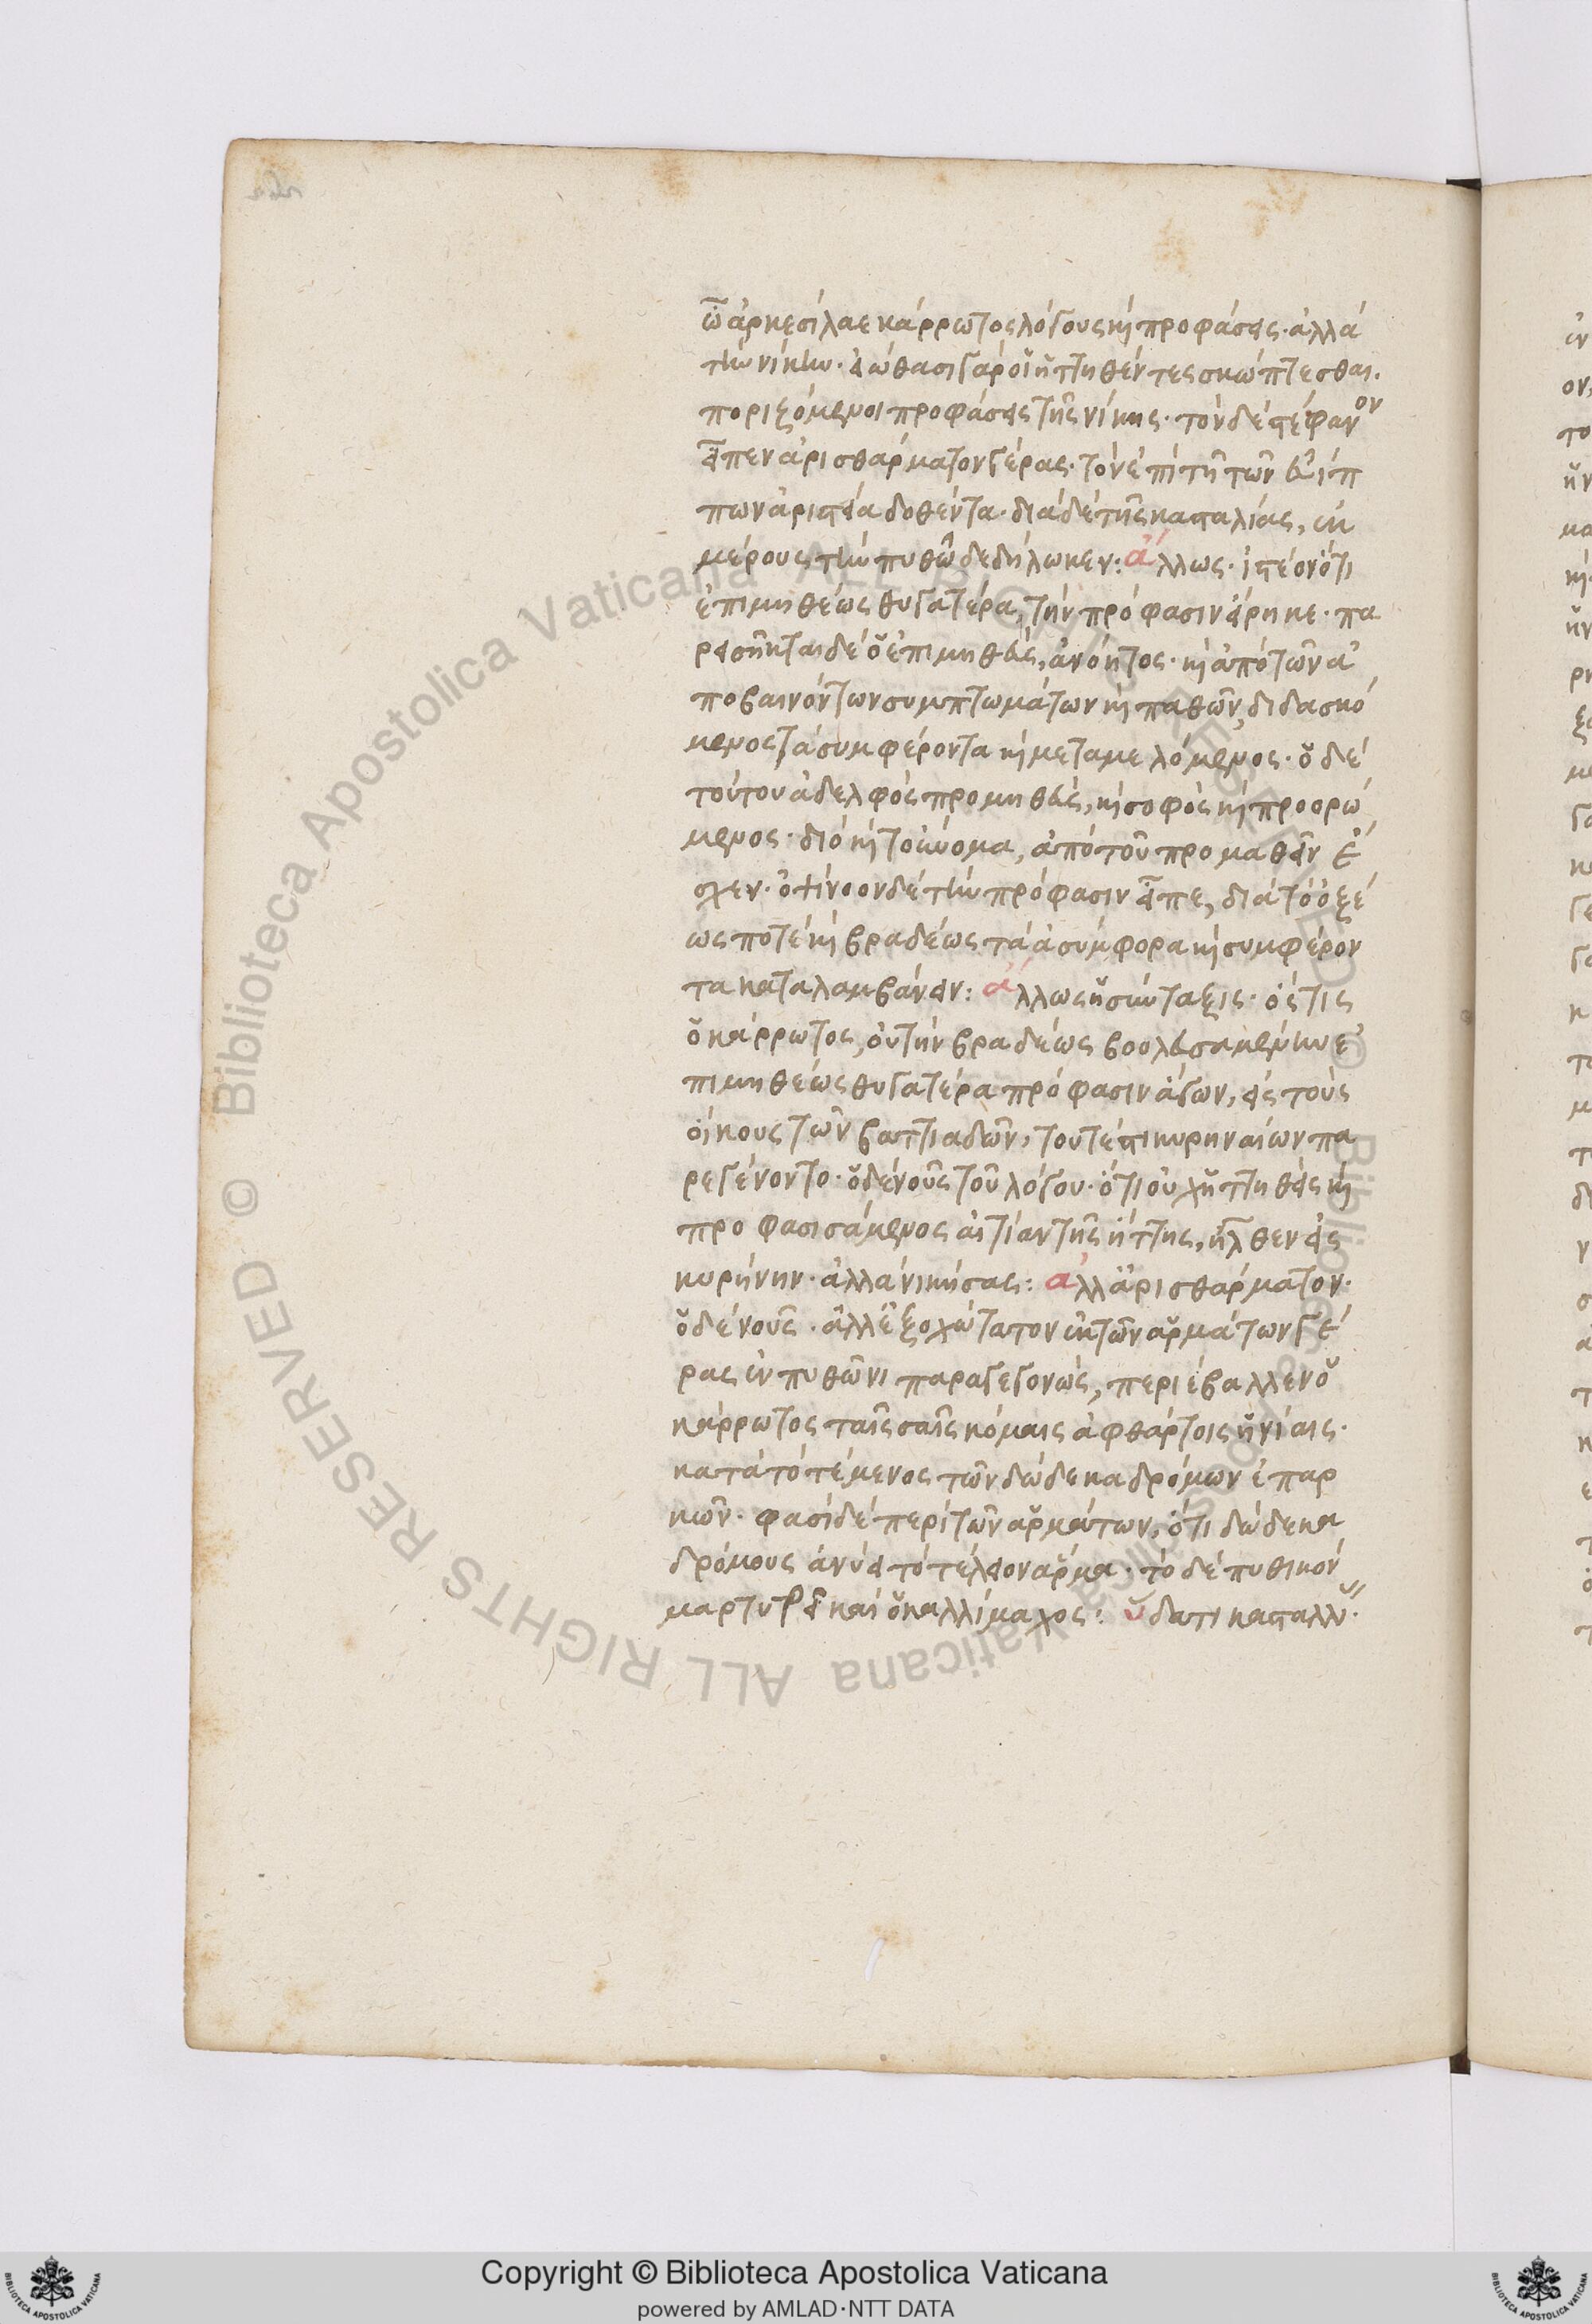 ὦ ἀρκεσίλαε κάρρωτος λόγους καὶ προφάσεις· ἀλλὰ
τὴν νίκην· εἰώθασι γὰρ οἱ ἡττηθέντες σκώπτεσθαι·
ποριζόμενοι προφάσεις τῆς νίκης· τὸν δὲ στέφανον
εἶπεν ἀρισθάρματον γέρας· τὸν ἐπὶ τῇ τῶν εὐίπ
πων ἀριστεία δοθέντα· διὰ δὲ τῆς κασταλίας, ἐκ
μέρους τὴν πυθῶ δεδήλωκεν: ἄλλως· ἰστέον ὅτι
ἐπιμηθέως θυγατέρα, τὴν πρόφασιν εἴρηκε· πα
ρεισῆκται δὲ ὁ ἐπιμηθεύς, ἀνόητος· καὶ ἀπὸ τῶν ἀ
ποβαινόντων συμπτωμάτων καὶ παθῶν, διδασκό
μενος τὰ συμφέροντα καὶ μεταμελόμενος· ὁ δὲ
τούτου ἀδελφὸς προμηθεύς, καὶ σοφὸς καὶ προορώ
μενος· διὸ καὶ τοὔνομα, ἀπὸ τοῦ προμαθεῖν ἔ
σχεν· ὀψίνοον δὲ τὴν πρόφασιν εἶπε, διὰ τὸ ὀξέ
ως ποτὲ καὶ βραδέως τὰ ἀσύμφορα καὶ συμφέρον
τα καταλαμβάνειν: ἄλλως ἡ σύνταξις· ὅς τις
ὁ κάρρωτος, οὐ τὴν βραδέως βουλευσαμένην ἐ
πιμηθέως θυγατέρα πρόφασιν ἄγων, εἰς τοὺς
οἴκους τῶν βαττιαδῶν, τουτέστι κυρηναίων πα
ρεγένοντο· ὁ δὲ νοῦς τοῦ λόγου· ὅτι οὐχ ἡττηθεὶς καὶ
προφασισάμενος αἰτίαν τῆς ἥττης, ἦλθεν εἰς
κυρήνην· ἀλλὰ νικήσας: ἀλλ' ἀρισθάρματον·
ὁ δὲ νοῦς· ἀλλ' ἐξοχώτατον ἐκ τῶν ἁρμάτων γέ
ρας ἐν πυθῶνι παραγεγονώς, περιέβαλλεν ὁ
κάρρωτος ταῖς σαῖς κόμαις ἀφθάρτοις ἡνίαις·
κατὰ τὸ τέμενος τῶν δώδεκα δρόμων ἐπαρ
κῶν· φασὶ δὲ περὶ τῶν ἁρμάτων, ὅτι δώδεκα
δρόμους ἀνύει τὸ τέλειον ἅρμα· τὸ δὲ πυθικὸν
μαρτυρεῖ καὶ ὁ καλλίμαχος: ὕδατι κασταλ